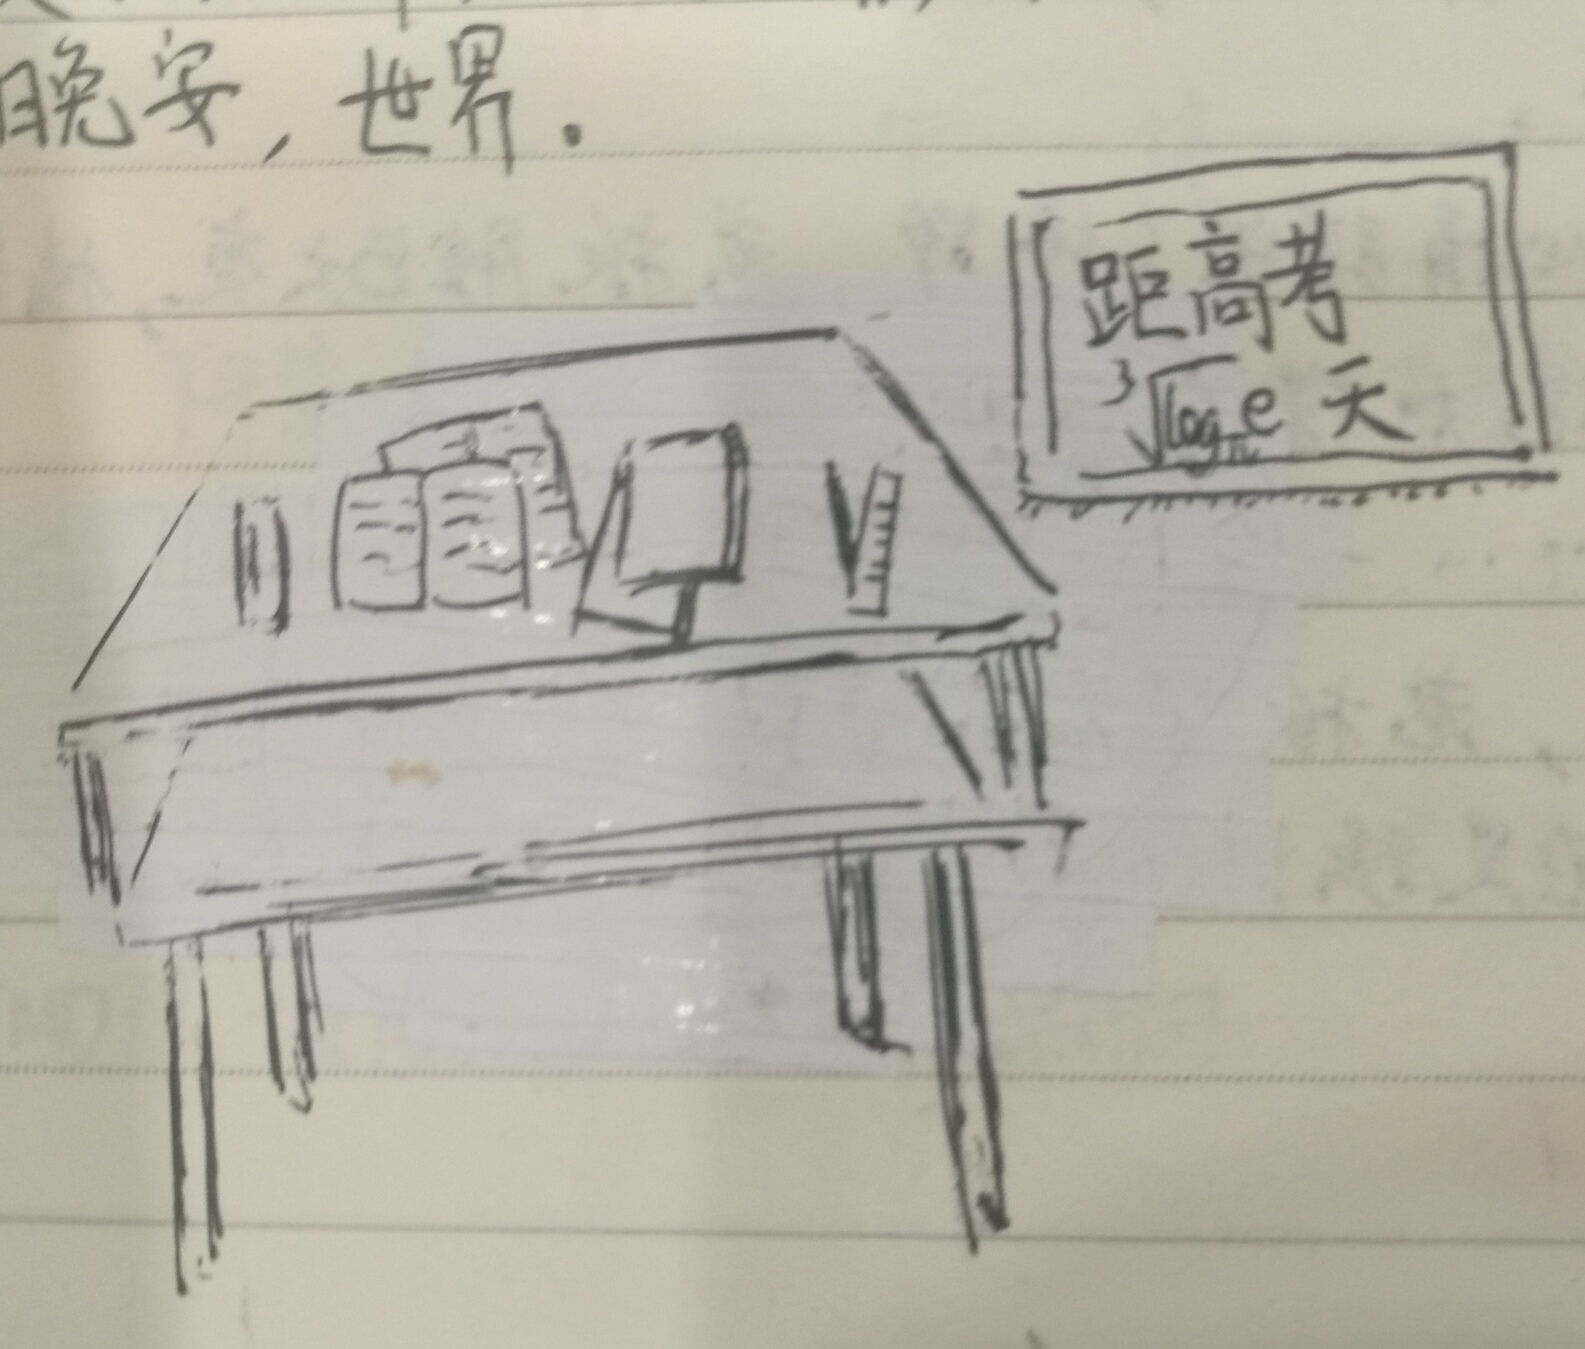 晚安，世界.
距高考
³√log_π e 天